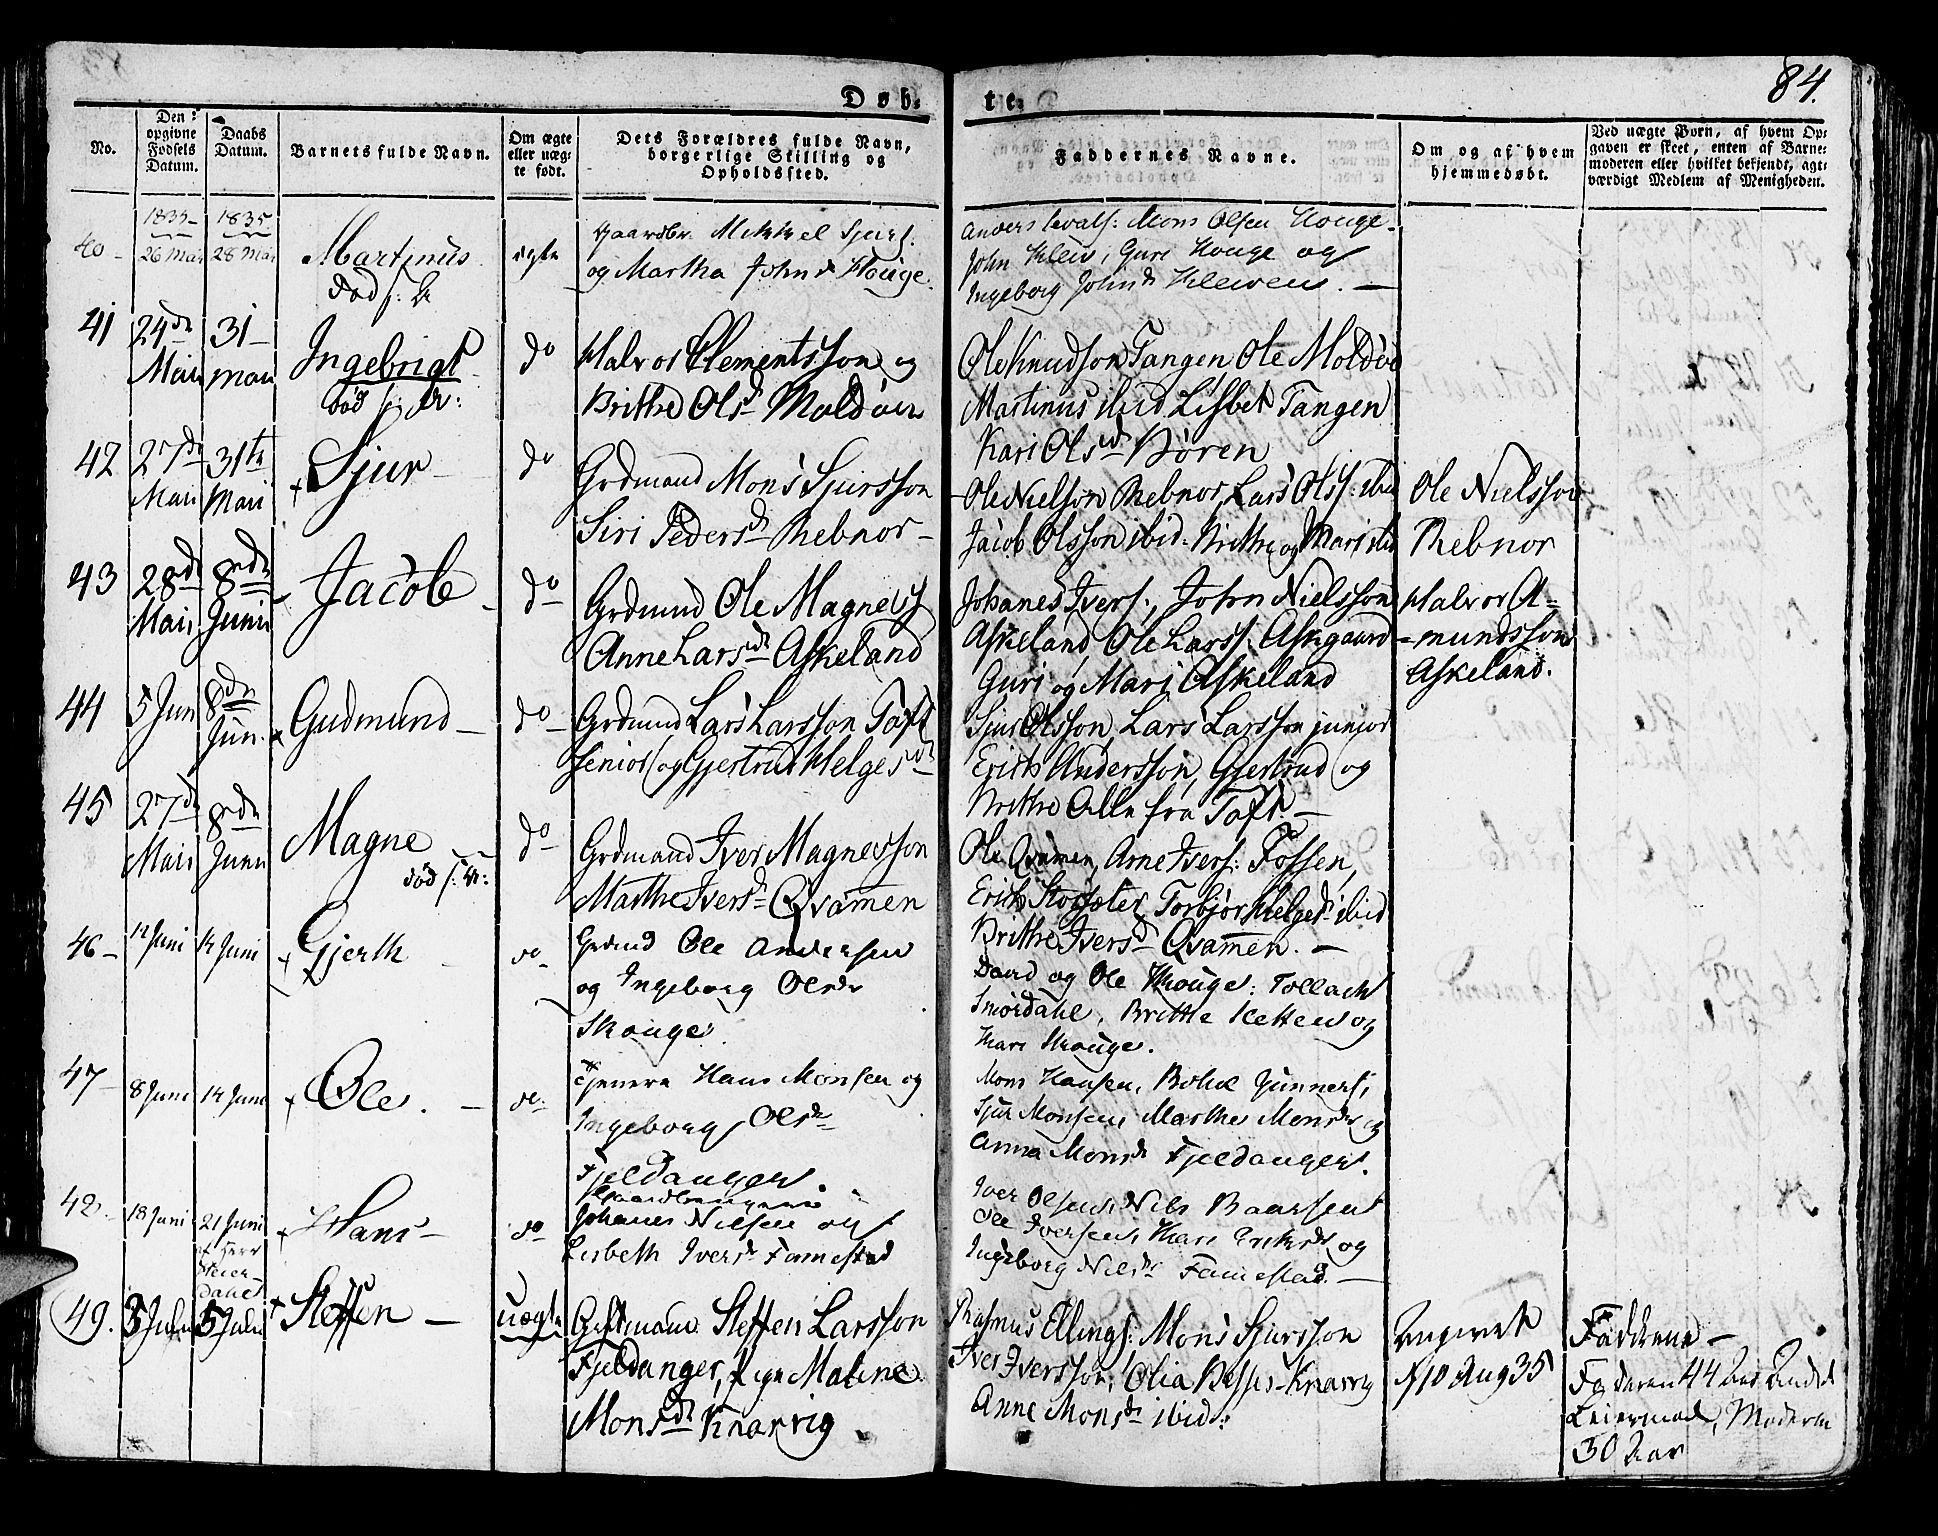 84.
Døb-
te.
No.
Den
opgivne
Fødsels
Datum.
Daabs
Datum.
Barnets fulde Navn.
Om ægte
eller uæg-
te født.
Dets Forældres fulde Navn,
borgerlige Stilling og
Opholdssted.
Faddernes Navne.
Om og af hvem
hjemmedøbt.
Ved uægte Børn, af hvem Op-
gaven er skeet, enten af Barne-
moderen eller hvilket bekjendt, agt-
værdigt Medlem af Menigheden.
1835
1835
40
26 Mai
28 Mai
Martinus
død
ægte
Gaardbr. Mikkel Sjurs:
og Martha Johnsd. Houge.
Anders Mons Olsen Houge
John Klev, Guri Houge og
Ingeborg Johnsd. Kleven. —
41
24de
Maii
31
Maii
Ingebrigt
død
do
Halvor Clementsson og
Brithe Olsd. Moldøen
Ole Knudson Tangen Ole Moldøe
Martinus ibid Lisbet Tangen
Kari Olsd. Børen
42
27de
Maii
31te
Maii
Sjur
do
Grdmand Mons Sjursson
Siri Pedersd. Rebnor
Ole Nielson Rebnor, Lars Olss: ibid
Jacob Olsson ibid. Brithe og Mari ibid
Ole Nielsson
Rebnor
43
28de
Maii
8de
Junii
Jacob
do
Grdmand Ole Magness
Anne Larsd. Askeland
Johanes Ivers:, John Nielsson
Askeland Ole Larss: Askgaard
Guri og Mari Askeland
Halvor A-
mundsson
Askeland.
44
5 Jun
8de
Jun.
Gudmund
do
Grdmand Lars Larsson Toft
senior og Gjertrud Helgesd.
Sjur Olsson, Lars Larsson junior
Erich Andersson, Gjertrud og
Brithe Alle fra Toft. —
45
27de
Maii
8de
Junii
Magne
død
do
Grdmand Iver Magnesson
Marthe Iversd. Qvammen
Ole Qvamen, Arne Ivers: Fossen,
Erich Storsæter, Torbjør Helgesd. ibid
Brithe Iversd. Qvammen. —
46
14 Juni
Gjerth
do
Grdmd Ole Andersen
og Ingeborg Olsdr
Skouge
David og Ole Skouge: Tollach
Smørdahl, Brithe Ketten og
Kari Skouge.
47
8 Juni
14 Juni
Ole.
do.
Tjenere Hans Monsen og
Ingeborg Olsdr
Fjeldanger.
Mons Hansen, Gunners,
Sjur Monsen, Marthe Monsdr og
Anna Monsd. Fjeldanger.
18 Juni
21 Juni
af Herr
Hans
do
Johanes Nilsen og
Lisbeth Iversd. Famestad
Iver Olsen, Nils Baarsen
Ole Iversen, Kari Eriksd. og
Ingeborg Nilsd. Famestad. —
49.
3 Julii
5 Julii
Steffen
uægte
Gift mand Steffen Larsson
Fjeldanger, pige Malene
Monsd. Knarvig
Rasmus Ellings: Mons Sjursson
Iver Iversson, Olia Knarvig
Anne Monsd. ibid:
10 Aug 35
Fadderne —
Faderen 44 Aar Andet
Leiermaal, Moderen
30 Aar